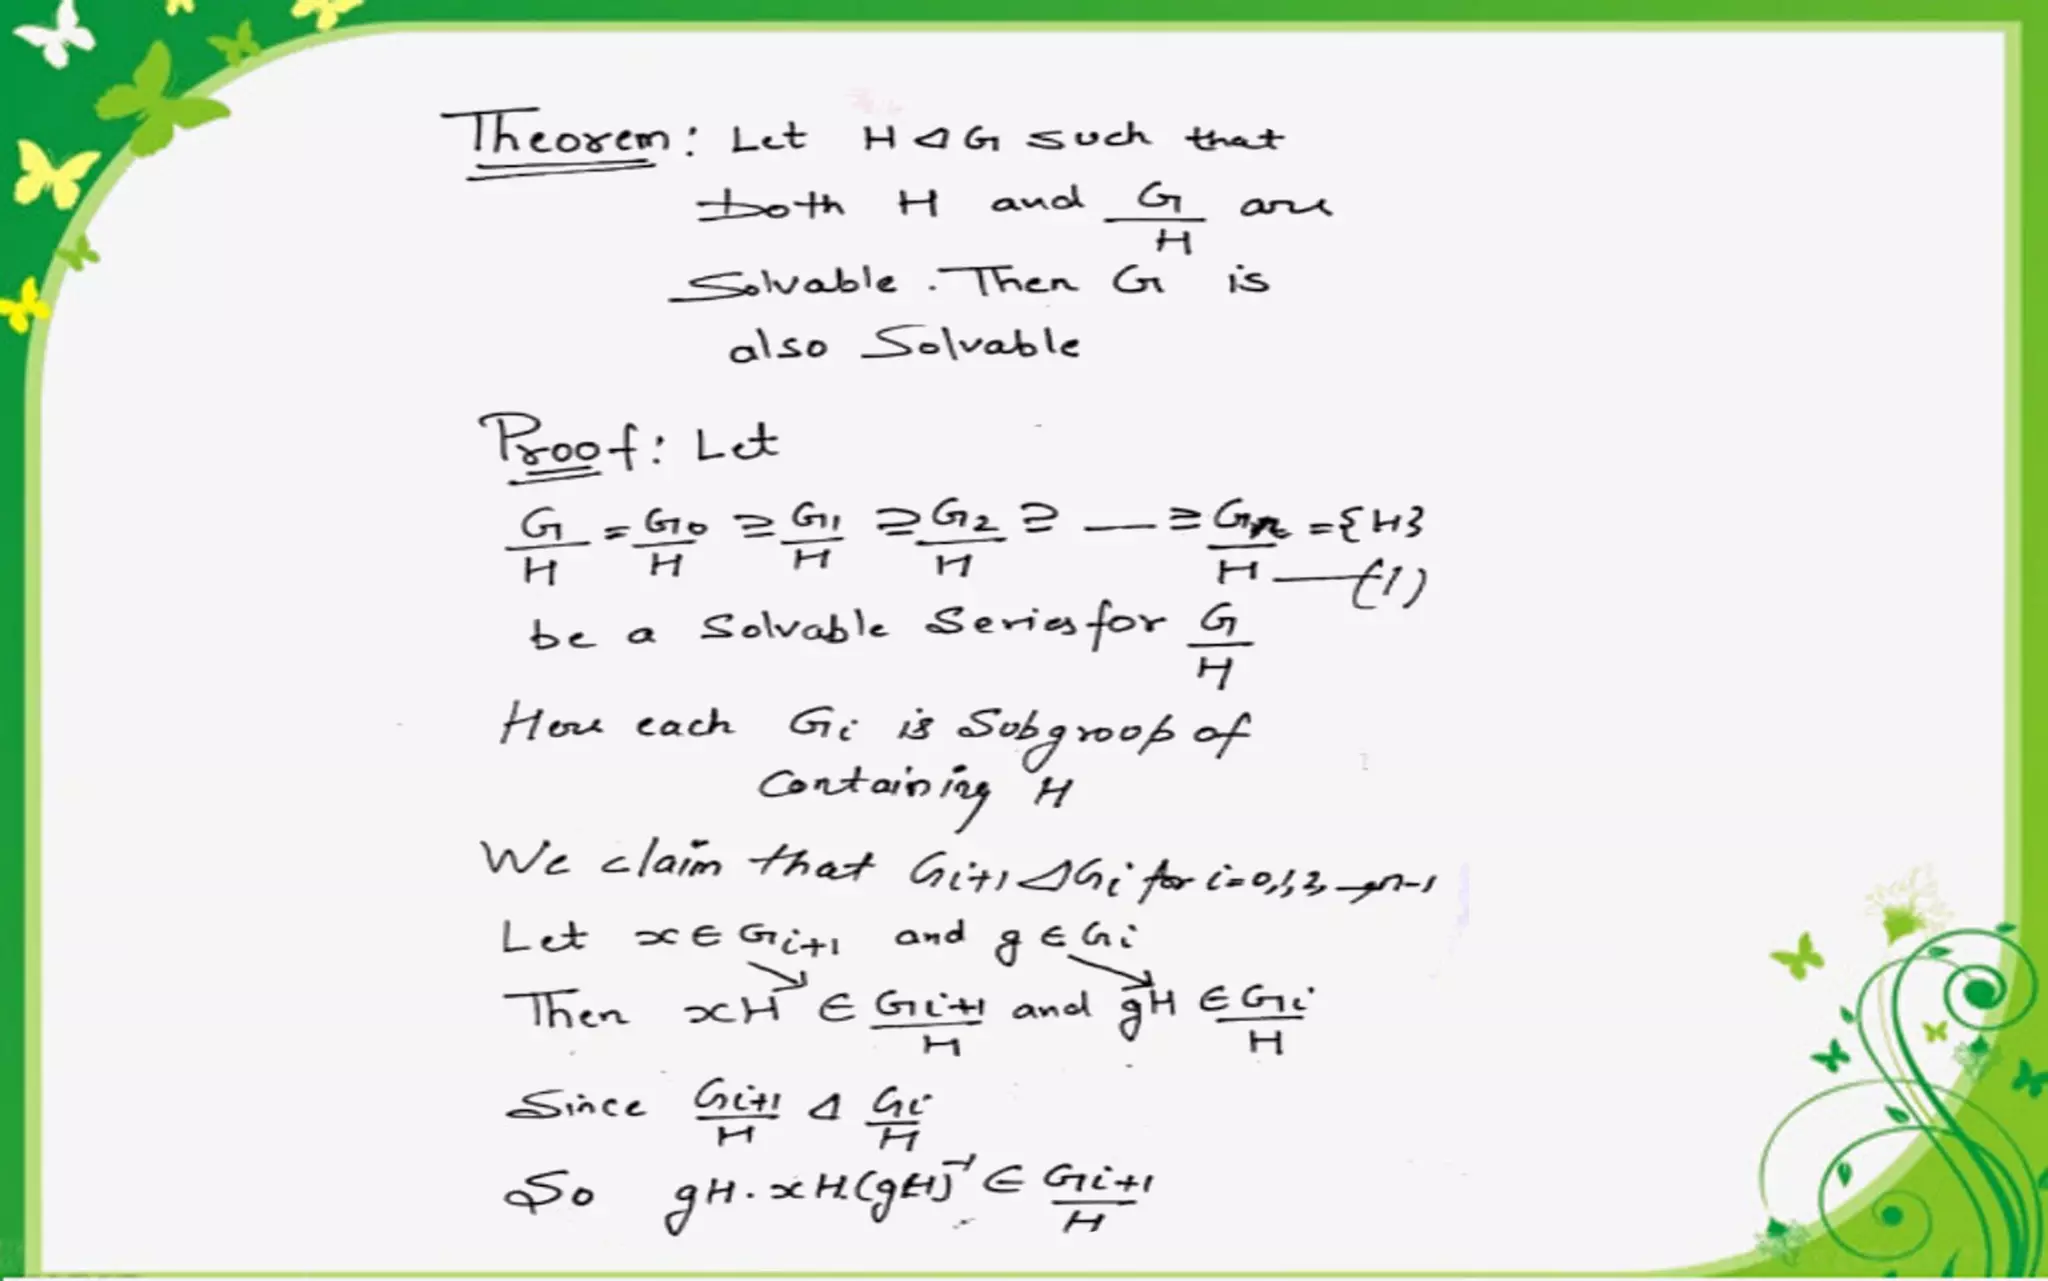 Theorem: Let H ⊲ G such that
both H and G/H are
Solvable. Then G is
also Solvable
Proof: Let
G/H = G₀/H ⊇ G₁/H ⊇ G₂/H ⊇ — ⊇ Gₙ/H = {H} —(1)
be a Solvable Series for G/H
Here each Gᵢ is Subgroop of
Containing H
We claim that Gᵢ₊₁ ⊲ Gᵢ for i=0,1,2,→n-1
Let x ∈ Gᵢ₊₁ and g ∈ Gᵢ
Then xH ∈ Gᵢ₊₁/H and gH ∈ Gᵢ/H
Since Gᵢ₊₁/H ⊲ Gᵢ/H
So gH.xH(gH)⁻¹ ∈ Gᵢ₊₁/H